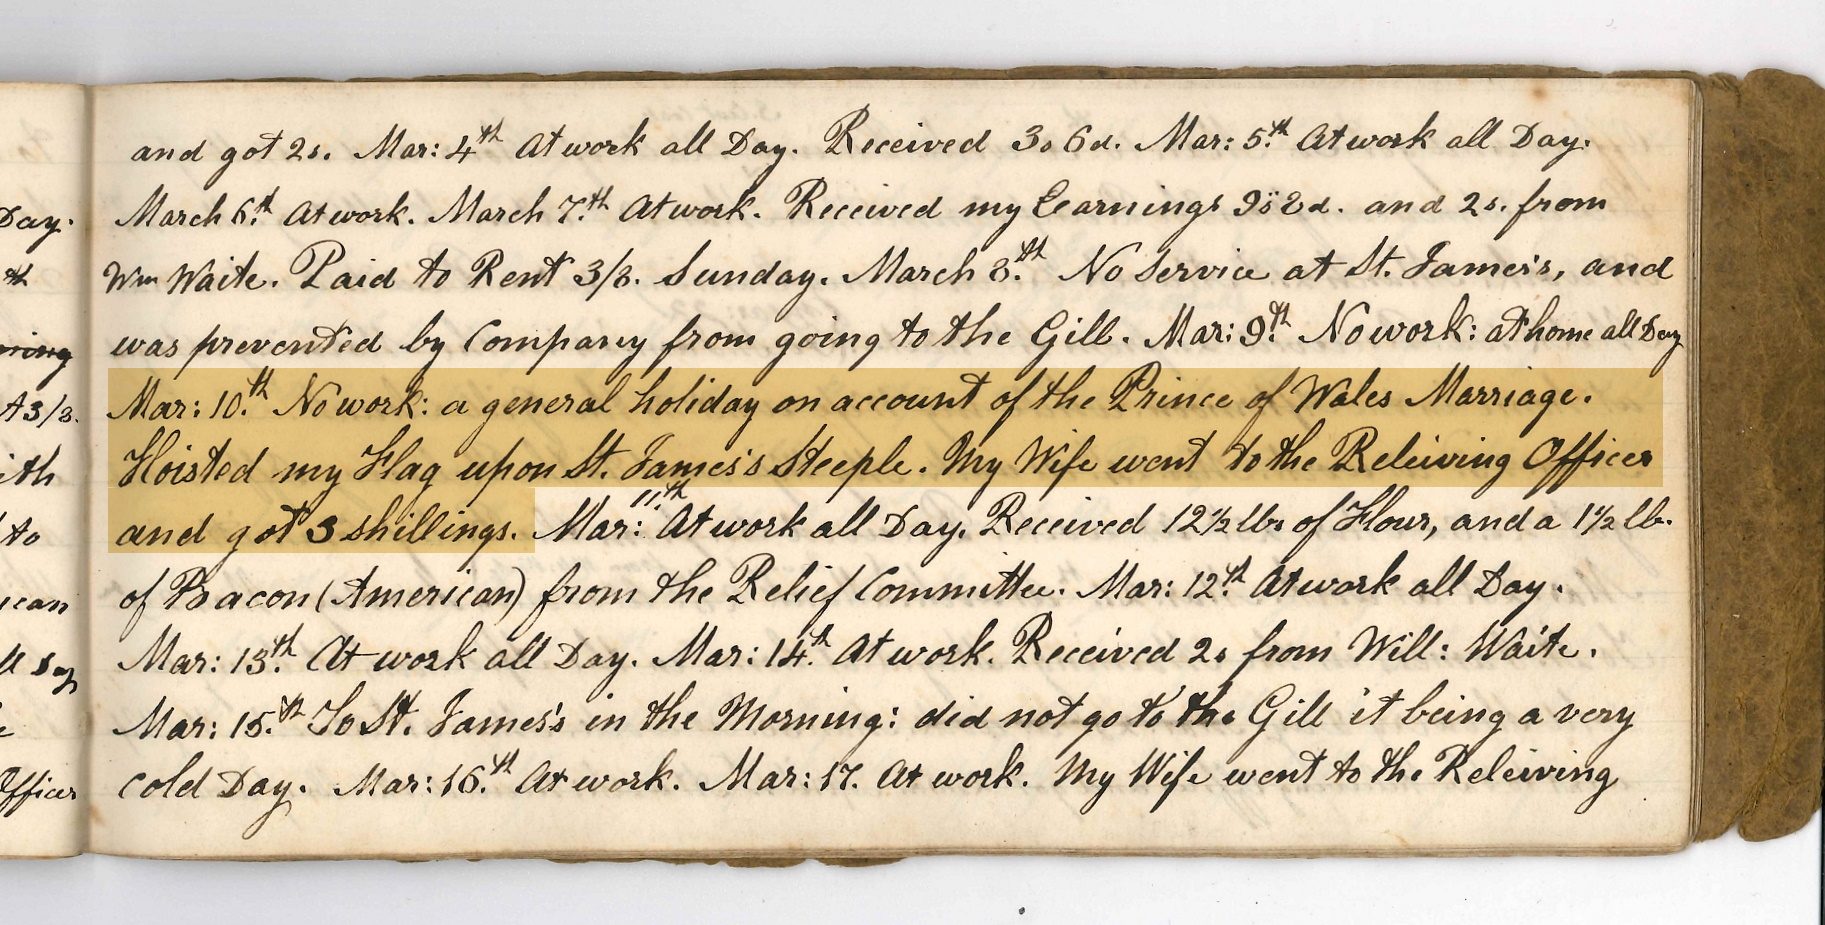 and got 2s. Mar: 4th At work all Day. Received 3s 6d. Mar: 5th At work all Day.
Day. March 6th At work. March 7th At work. Received my Earnings 9s 2d. and 2s. from
th Wm Waite. Paid to Rent 3/3. Sunday. March 8th No Service at St. James's, and
was prevented by Company from going to the Gill. Mar: 9th No work: at home all Day
3/3. Mar: 10th No work: a general holiday on account of the Prince of Wales Marriage.
ith Hoisted my Flag upon St. James's Steeple. My Wife went to the Releiving Officer
to and got 3 shillings. Mar: 11th At work all Day. Received 12½ lbs of Flour, and a 1½ lb.
ican of Bacon (American) from the Relief Committee. Mar: 12th At work all Day.
Mar: 13th At work all Day. Mar: 14th At work. Received 2s from Will: Waite.
Mar: 15th To St. James's in the Morning: did not go to the Gill it being a very
Officer cold Day. Mar: 16th At work. Mar: 17. At work. My Wife went to the Releiving